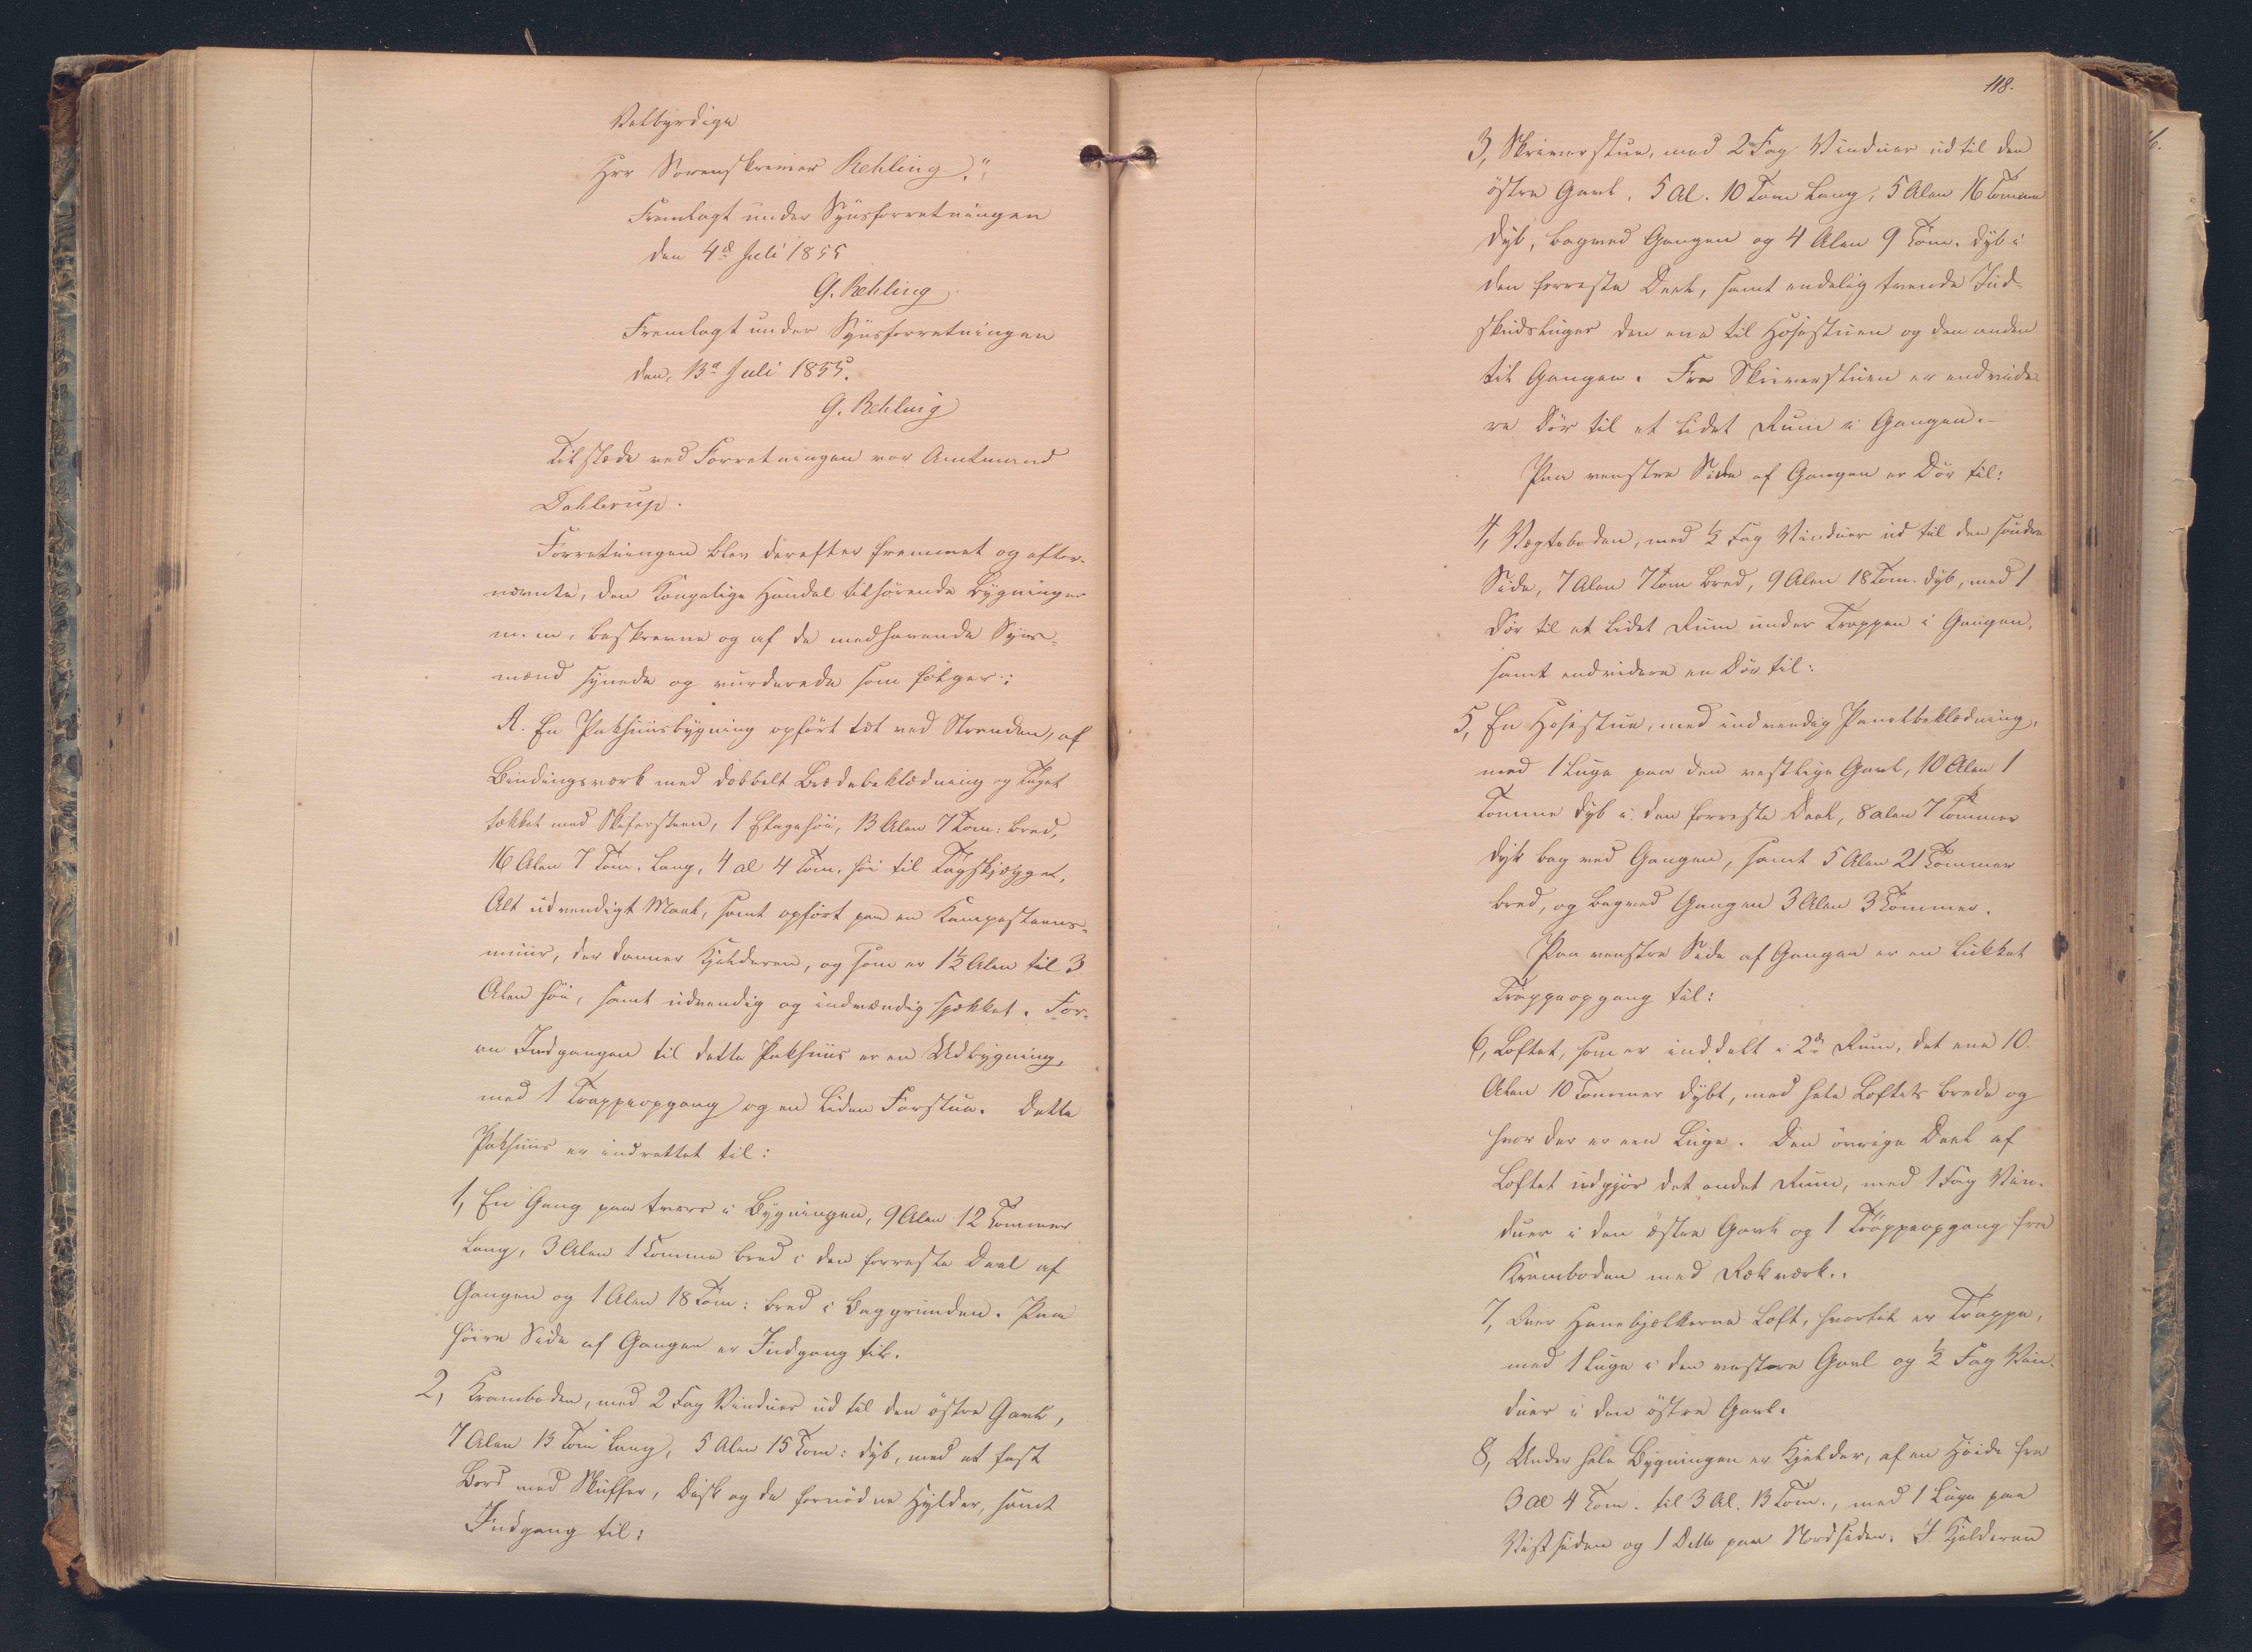 Velbyrdige
Hrr Sorenskriver Rehling."
Fremlagt under Synsforretningen
den 4de Juli 1855
G. Rehling
Fremlagt under Synsforretningen
den, 13de Juli 1855.
G. Rehling
Tilstæde ved Forretningen var Amtmand
Dahlerup.
Forretningen blev derefter fremmet og efter-
nævnte, den Kongelige Handel tilhørende Bygninger
m. m. beskrevne og af de medhavende Syns-
mænd synede og vurderede som følger:
A. En Pakhuusbygning opført tæt ved Stranden, af
Bindingsværk med dobbelt Brædebeklædning og Taget
tækket med Skifersteen, 1 Etage höi, 13 Alen 7 Tom: bred,
16 Alen 7 Tom. lang, 4 al 4 Tom. höi til Tagskjægget,
Alt udvendigt Maal, samt opfört paa en Kampesteens-
muur, der danner Kjelderen, og som er 1½ Alen til 3
Alen höi, samt udvendig og indvændig spækket. For-
an Indgangen til dette Pakhuus er en Udbygning,
med 1 Trappeopgang og en liden Forstue. Dette
Pakhuus er indrettet til:
1, En Gang paa tværs i Bygningen, 9 Alen 12 Tommer
lang, 3 Alen 1 Tomme bred i den forreste Deel af
Gangen og 1 Alen 18 Tom: bred i Baggrunden. Paa
höire Side af Gangen er Indgang til.
2, Kramboden, med 2 Fag Vinduer ud til den östre Gavl,
7 Alen 13 Tom lang, 5 Alen 15 Tom: dyb, med et fast
Bord med Skuffer, Disk og de fornödne Hylder, samt
Indgang til:
118.
3, Skriverstue, med 2 Fag Vinduer ud til den
östre Gavl, 5 Al. 10 Tom lang, 5 Alen 16 Tomme
dyb, bagved Gangen og 4 Alen 9 Tom. dyb i
den forreste Deel, samt endelig tvende Ind-
skudsluger den ene til Højestuen og den anden
til Gangen. Fra Skriverstuen er endvide-
re Dör til et lidet Rum i Gangen.
Paa venstre Side af Gangen er Dör til:
4, Vægtboden, med ½ Fag Vinduer ud til den söndre
Side, 7 Alen 7 Tom bred, 9 Alen 18 Tom. dyb, med 1
Dör til et lidet Rum under Trappen i Gangen,
samt endvidere en Dör til:
5, En Højestue, med indvendig Panelbeklædning,
med 1 Luge paa den vestlige Gavl, 10 Alen 1
Tomme dyb i den forreste Deel, 8 alen 7 Tommer
dyb bag ved Gangen, samt 5 Alen 21 Tommer
bred, og bagved Gangen 3 Alen 3 Tommer.
Paa venstre Side af Gangen er en lukket
Trappeopgang til:
6, Loftet, som er inddelt i 2de Rum, det ene 10
Alen 10 Tommer dybt, med hele Loftets brede og
hvor der er een Luge. Den övrige Deel af
Loftet udgjör det andet Rum, med 1 Fag Vin-
duer i den östre Gavl og 1 Trappeopgang fra
Kramboden med Rækværk.
7, Over Hanebjælkerne Loft, hvortil er Trappe,
med 1 Luge i den vestre Gavl og ½ Fag Vin-
duer i den östre Gavl.
8, Under hele Bygningen er Kjelder, af en Höide fra
3 al 4 Tom. til 3 Al. 13 Tom., med 1 Luge paa
Vestsiden og 1 Ditto paa Nordsiden. I Kjelderen